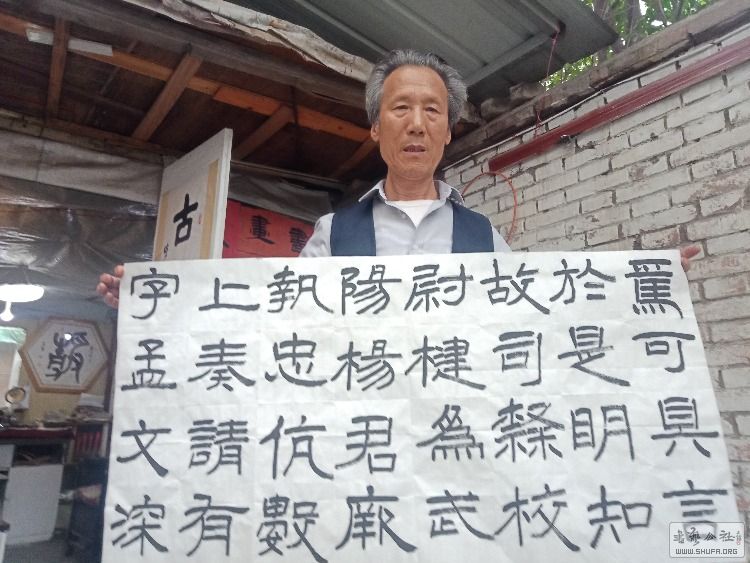 焉可具言
於是明知
故司隸校
尉楗為武
陽楊君厥
執忠伉數
上奏請有
字孟文深
古
畫
書
WWW.SHUFA.ORG